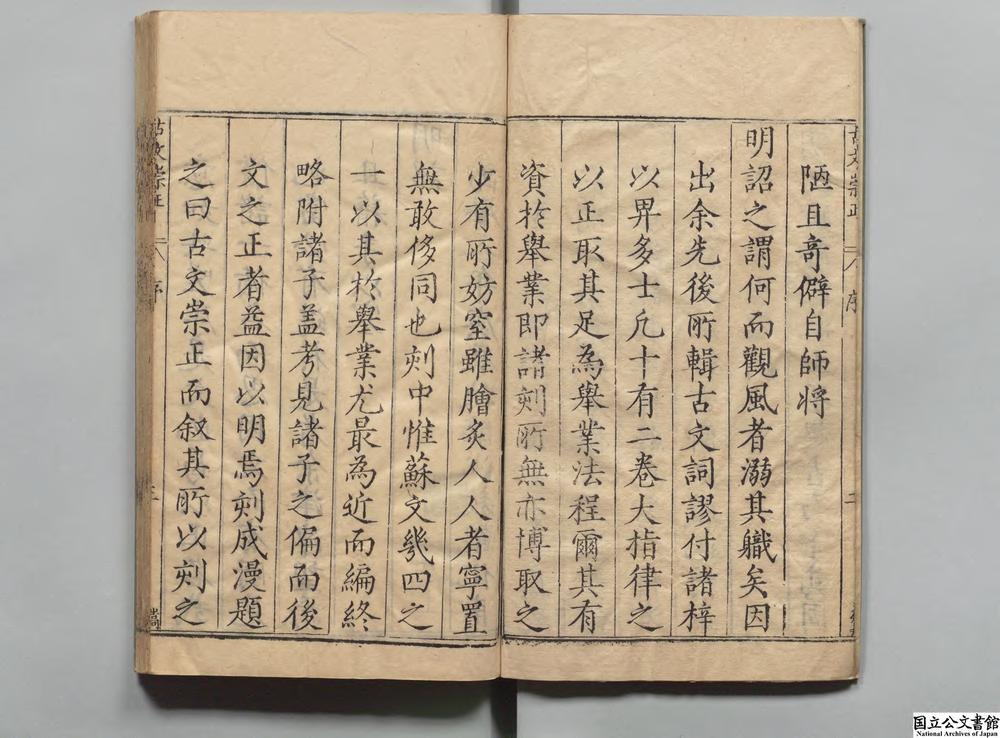 陋且奇僻自師將
明詔之謂何而觀風者溺其職矣因
出余先後所輯古文詞謬付諸梓
以畀多士凡十有二卷大指律之
以正取其足為舉業法程爾其有
資於舉業即諸刻所無亦博取之
少有所妨窒雖膾炙人人者寧置
無敢侈同也刻中惟蘇文幾四之
一以其於舉業尤最為近而編終
略附諸子盖考見諸子之偏而後
文之正者益因以明焉刻成漫題
之曰古文崇正而叙其所以刻之
古文崇正
序
国立公文書館
National Archives of Japan